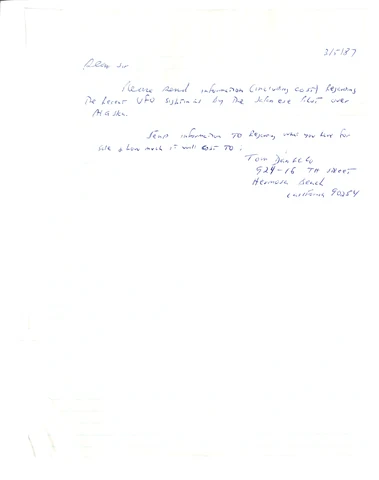 3/5/87
Dear Sir
Please send information (including cost) Regarding
The Recent UFO Sightings by The Japanese Pilot over
Alaska.
Send information TO Regarding what you have for
sale & how much it will cost TO:
Tom
924-16 TH street
Hermosa Beach
California 90254